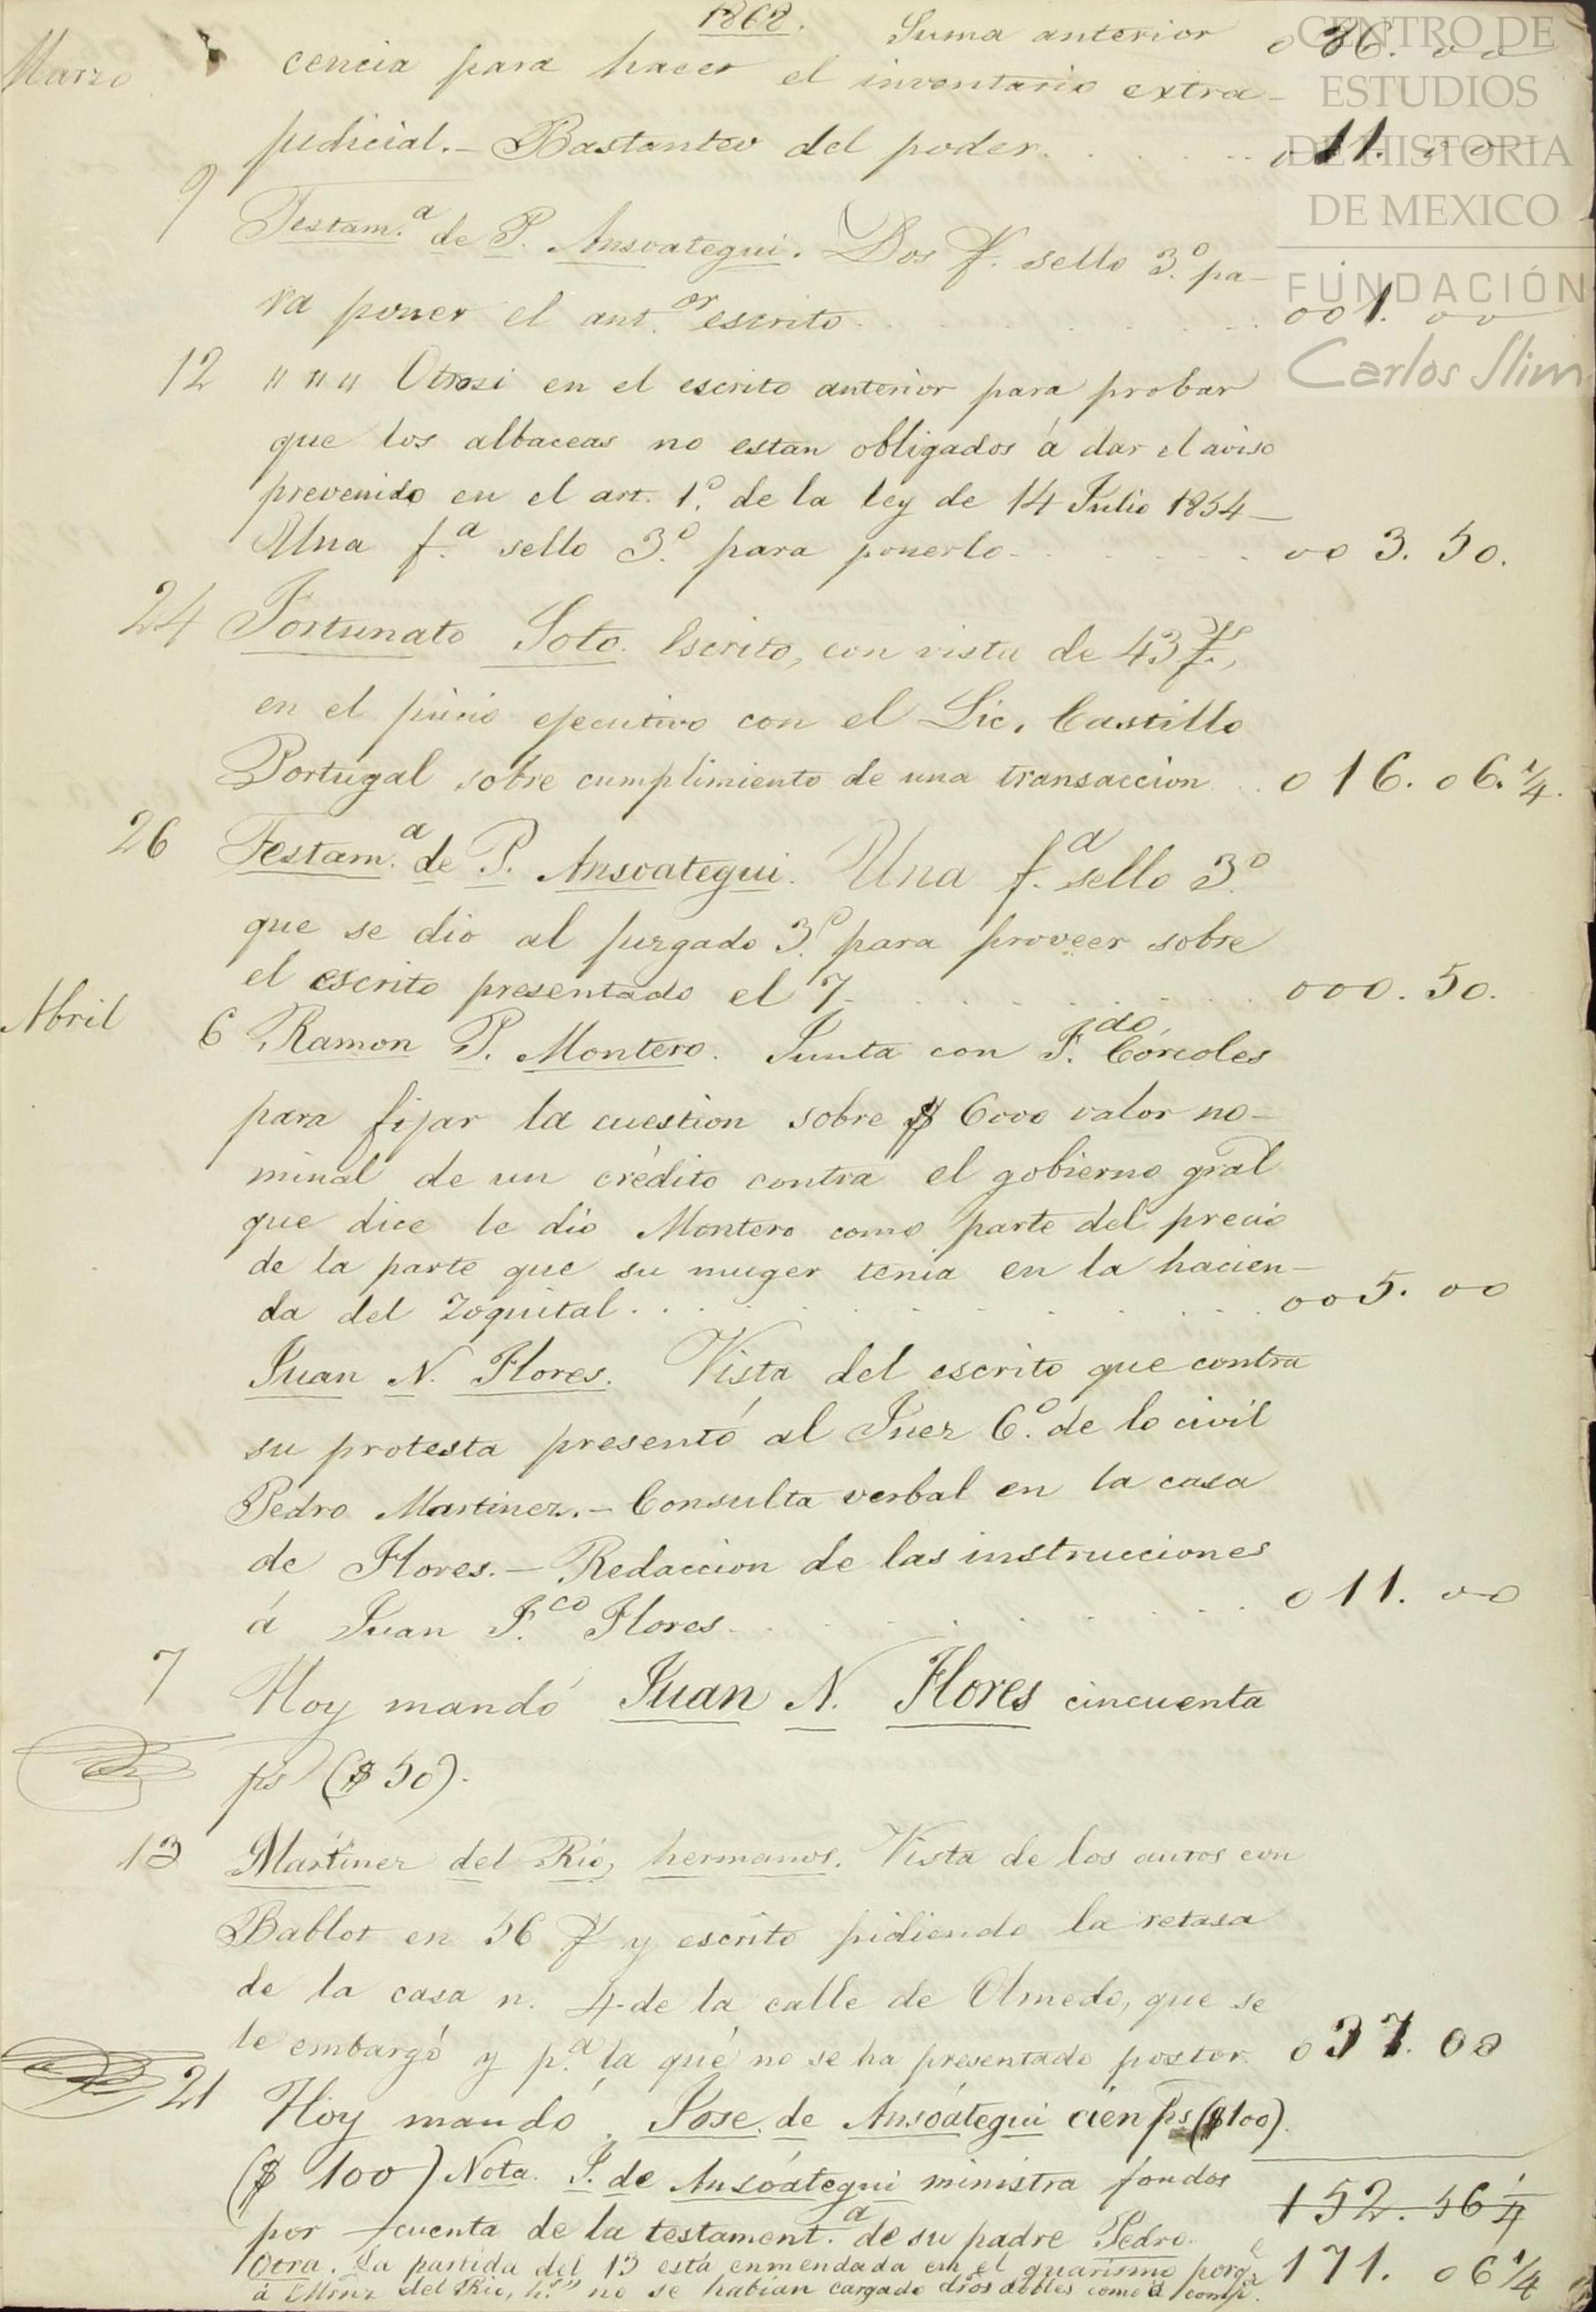 1868. Suma anterior 0 86. 00
Marzo cencia para hacer el inventario extra-
judicial.- Bastanteo del poder. . . . . . . 0 11. 00
9 Testam.ª de P. Ansoategui. Dos f. sello 3.º pa-
ra poner el ant.or escrito. . . . . . . 001. 00
12 " " " Otrosi en el escrito anterior para probar
que los albaceas no estan obligados á dar el aviso
prevenido en el art. 1.º de la ley de 14 Julio 1854-
Una f.ª sello 3.º para ponerlo. . . . . . 00 3. 50.
24 Fortunato Soto. Escrito, con vista de 43 f.,
en el juicio ejecutivo con el Lic. Castillo
Portugal sobre cumplimiento de una transaccion . . 0 16. 06. 1/4.
26 Testam.ª de P. Ansoategui. Una f.ª sello 3.º
que se dio al juzgado 3.º para proveer sobre
el escrito presentado el 7. . . . . . . 000. 50.
Abril 6 Ramon P. Montero. Junta con F.do Córcoles
para fijar la cuestion sobre $ 6000 valor no-
minal de un crédito contra el gobierno gral
que dice le dió Montero como parte del precio
de la parte que su muger tenia en la hacien-
da del Zoquital. . . . . . . . 005. 00
Juan N. Flores. Vista del escrito que contra
su protesta presentó al Juez 6.º de lo civil
Pedro Martinez.- Consulta verbal en la casa
de Flores.- Redaccion de las instrucciones
á Juan F.co Flores. . . . . . . 0 11. 00
7 Hoy mandó Juan N. Flores cincuenta
ps ($ 50).
13 Martinez del Rio, hermanos. Vista de los autos con
Bablot en 56 f y escrito pidiendo la retasa
de la casa n. 4 de la calle de Olmedo, que se
le embargó y p.ª la que no se ha presentado postor. 0 37. 00
21 Hoy mandó José de Ansoátegui cien ps ($100).
($ 100) Nota. J. de Ansoátegui ministra fondos
152. 56 1/4
por cuenta de la testament.ª de su padre Pedro.
Otra. La partida del 13 está enmendada en el guarismo porq.e
171. 06 1/4
á Mrnz del Rio, h.os no se habian cargado dros dobles como á comp.ª
CENTRO DE
ESTUDIOS
DE HISTORIA
DE MEXICO
FUNDACIÓN
Carlos Slim